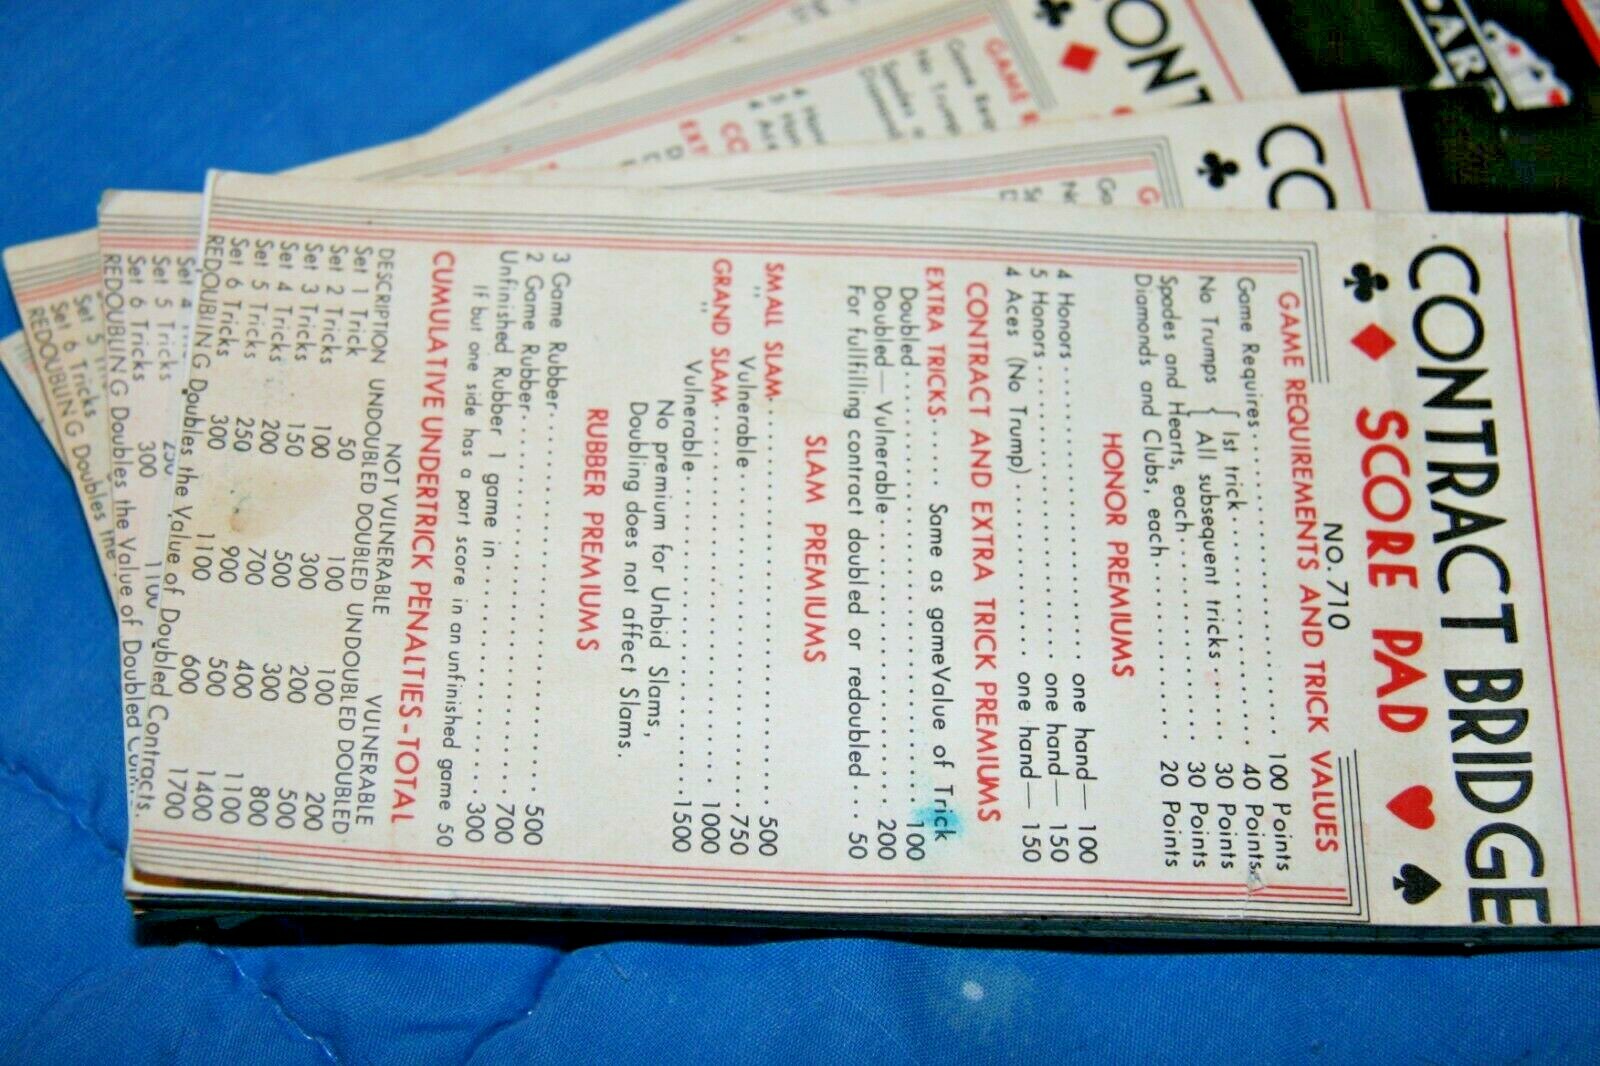 CONTRACT BRIDGE
SCORE PAD
NO. 710
GAME REQUIREMENTS AND TRICK VALUES
Game Requires 100 Points
No Trumps { 1st trick 40 Points
All subsequent tricks 30 Points
Spades and Hearts, each 30 Points
Diamonds and Clubs, each 20 Points
HONOR PREMIUMS
4 Honors one hand— 100
5 Honors one hand— 150
4 Aces (No Trump) one hand— 150
CONTRACT AND EXTRA TRICK PREMIUMS
EXTRA TRICKS Same as game Value of Trick
Doubled 100
Doubled—Vulnerable 200
For fullfilling contract doubled or redoubled 50
SLAM PREMIUMS
SMALL SLAM 500
" Vulnerable 750
GRAND SLAM 1000
" Vulnerable 1500
No premium for Unbid Slams,
Doubling does not affect Slams.
RUBBER PREMIUMS
3 Game Rubber 500
2 Game Rubber 700
Unfinished Rubber 1 game in 300
If but one side has a part score in an unfinished game 50
CUMULATIVE UNDERTRICK PENALTIES-TOTAL
NOT VULNERABLE VULNERABLE
DESCRIPTION UNDOUBLED DOUBLED UNDOUBLED DOUBLED
Set 1 Trick 50 100 100 200
Set 2 Tricks 100 300 200 500
Set 3 Tricks 150 500 300 800
Set 4 Tricks 200 700 400 1100
Set 5 Tricks 250 900 500 1400
Set 6 Tricks 300 1100 600 1700
REDOUBLING Doubles the Value of Doubled Contracts.
Set 4
Set 5 Tricks 250
Set 6 Tricks 300 1100
REDOUBLING Doubles the Value of Doubled
Set 5
Set 6 Tricks
REDOUBLING Doubles the
CO
G
CONT
GAME
Game Req
No Trump
Spades
Diamond
4 Hono
5 Hon
4 Ace
CO
EXT